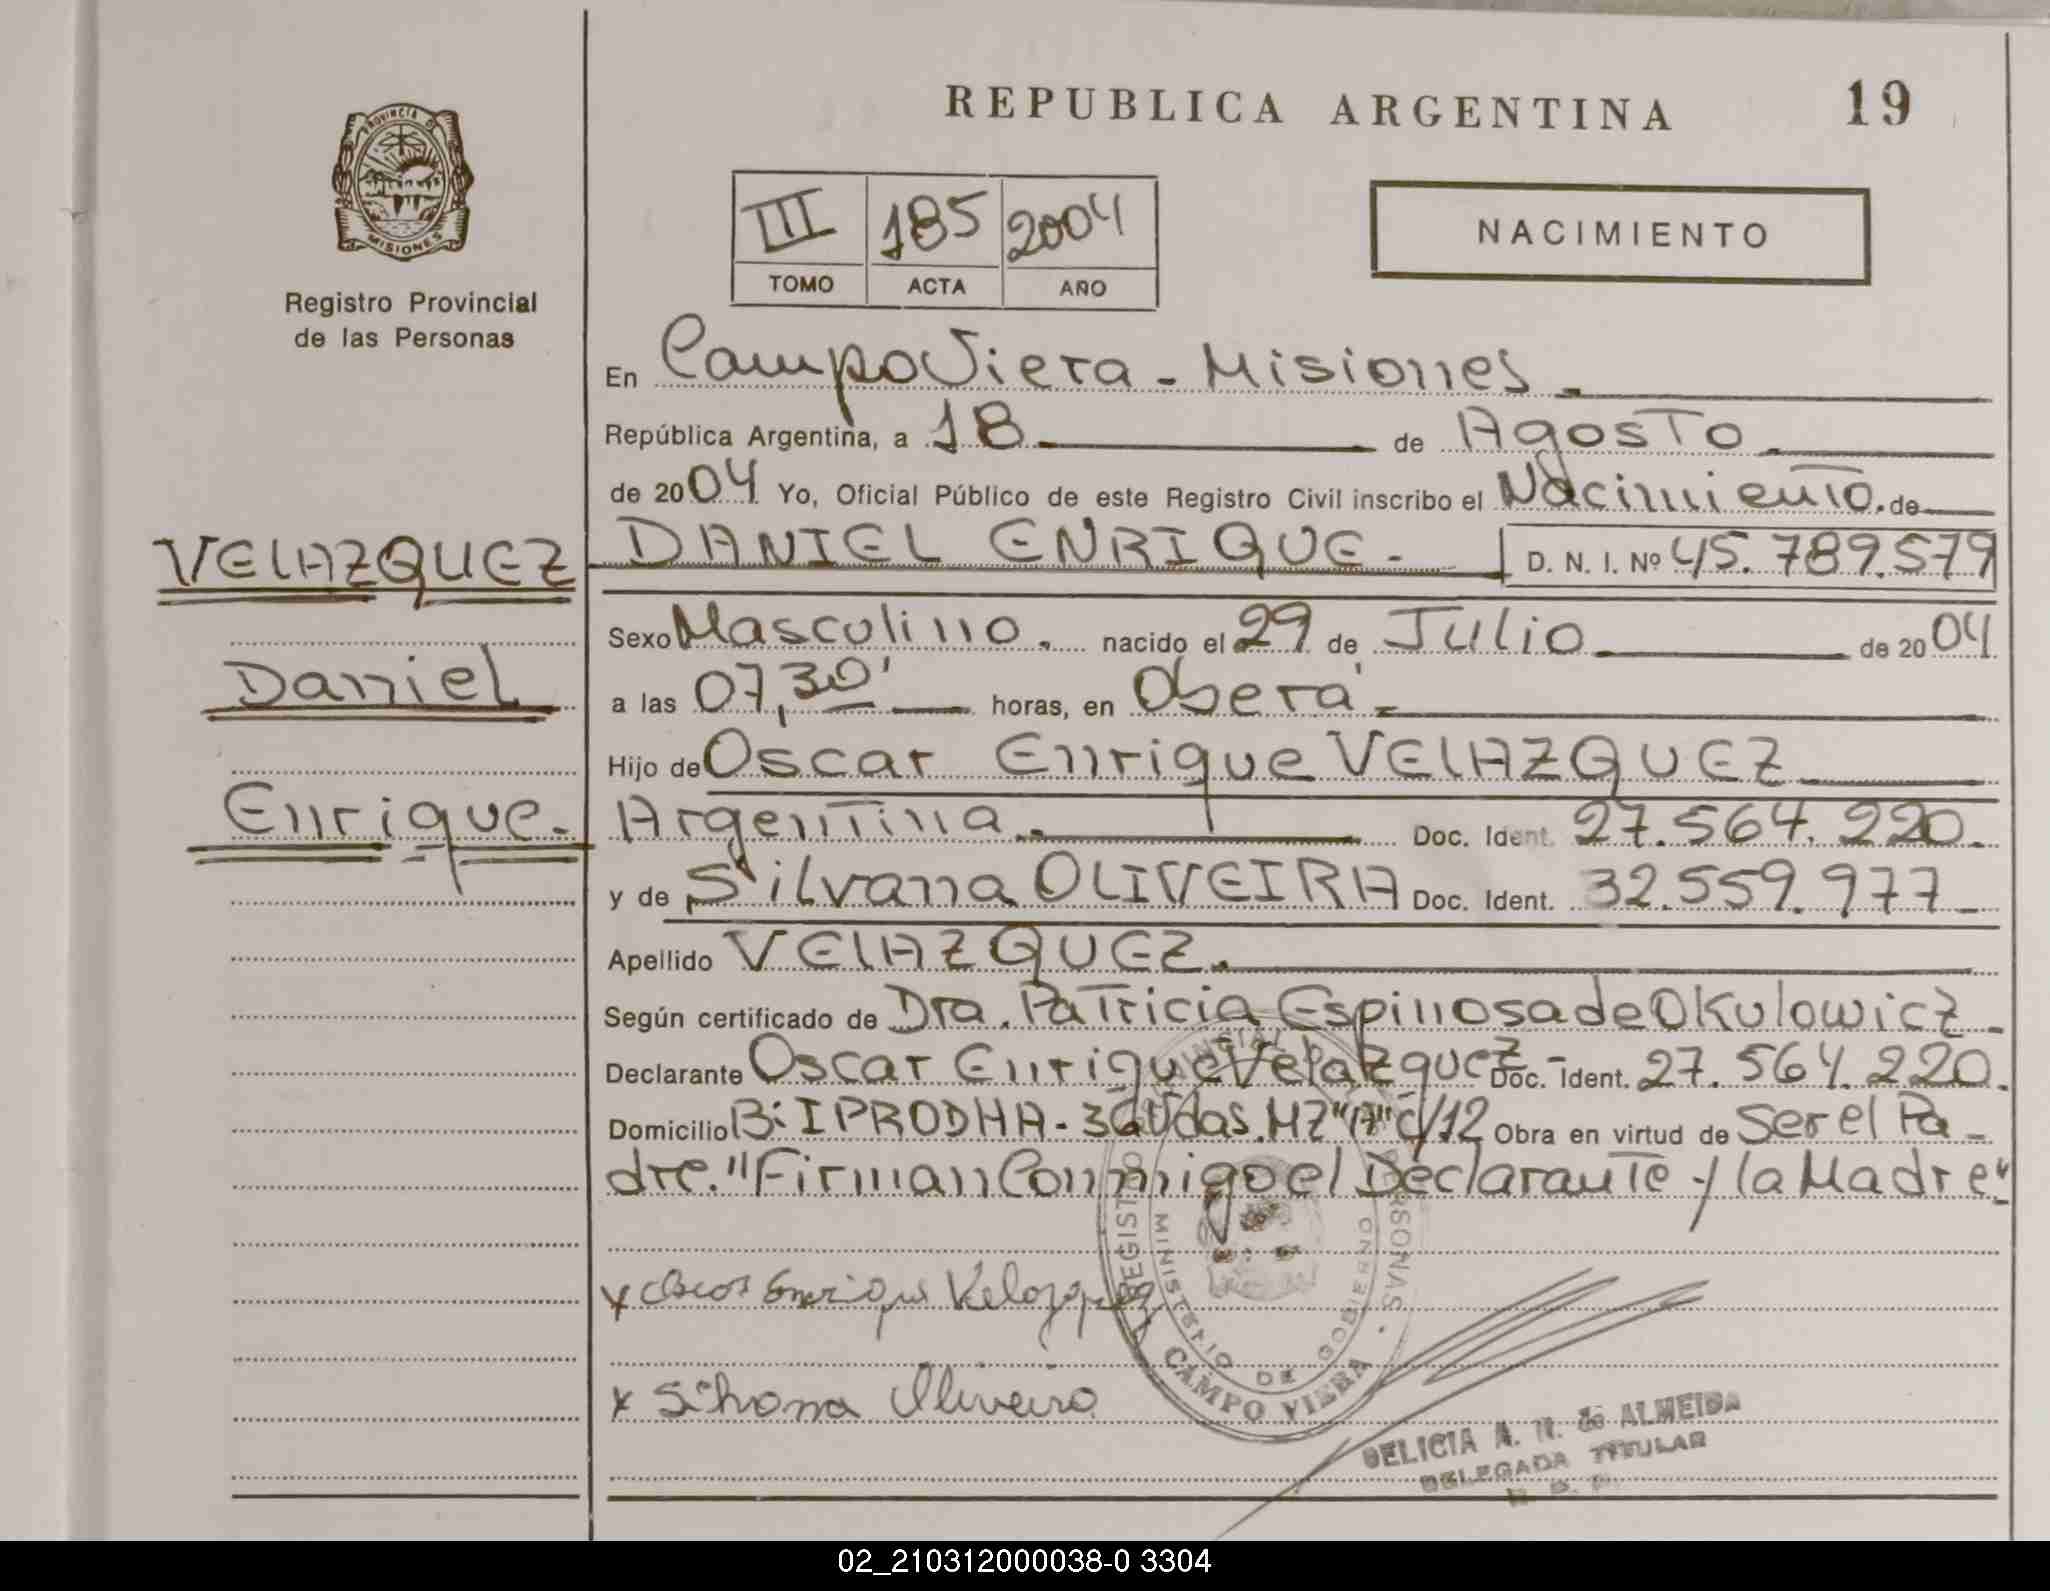 REPUBLICA ARGENTINA 19
PROVINCIA DE
MISIONES
Registro Provincial
de las Personas
III 185 2004
TOMO ACTA AÑO
NACIMIENTO
En Campo Viera - Misiones -
República Argentina, a 18 de Agosto
de 2004 Yo, Oficial Público de este Registro Civil inscribo el Nacimiento de
VELAZQUEZ
Daniel
Enrique.
DANIEL ENRIQUE - D. N. I. Nº 45.789.579
Sexo Masculino. nacido el 29 de Julio de 2004
a las 07,30' horas, en Oberá -
Hijo de Oscar Enrique VELAZQUEZ
Argentina. Doc. Ident. 27.564.220.
y de Silvana OLIVEIRA Doc. Ident. 32.559.977
Apellido VELAZQUEZ.
Según certificado de Dra. Patricia Espinosa de Okulowicz -
Declarante Oscar Enrique Velazquez - Doc. Ident. 27.564.220.
Domicilio Bº IPRODHA - Mz "A" c/12 Obra en virtud de Ser el Pa-
dre. "Firman Conmigo el Declarante y la Madre"
x Oscar Enrique Velazquez
x Silvana Oliveira
REGISTRO PROVINCIAL PERSONAS
MINISTERIO DE GOBIERNO
CAMPO VIERA
DELICIA A. N. de ALMEIDA
DELEGADA TITULAR
02_210312000038-0 3304